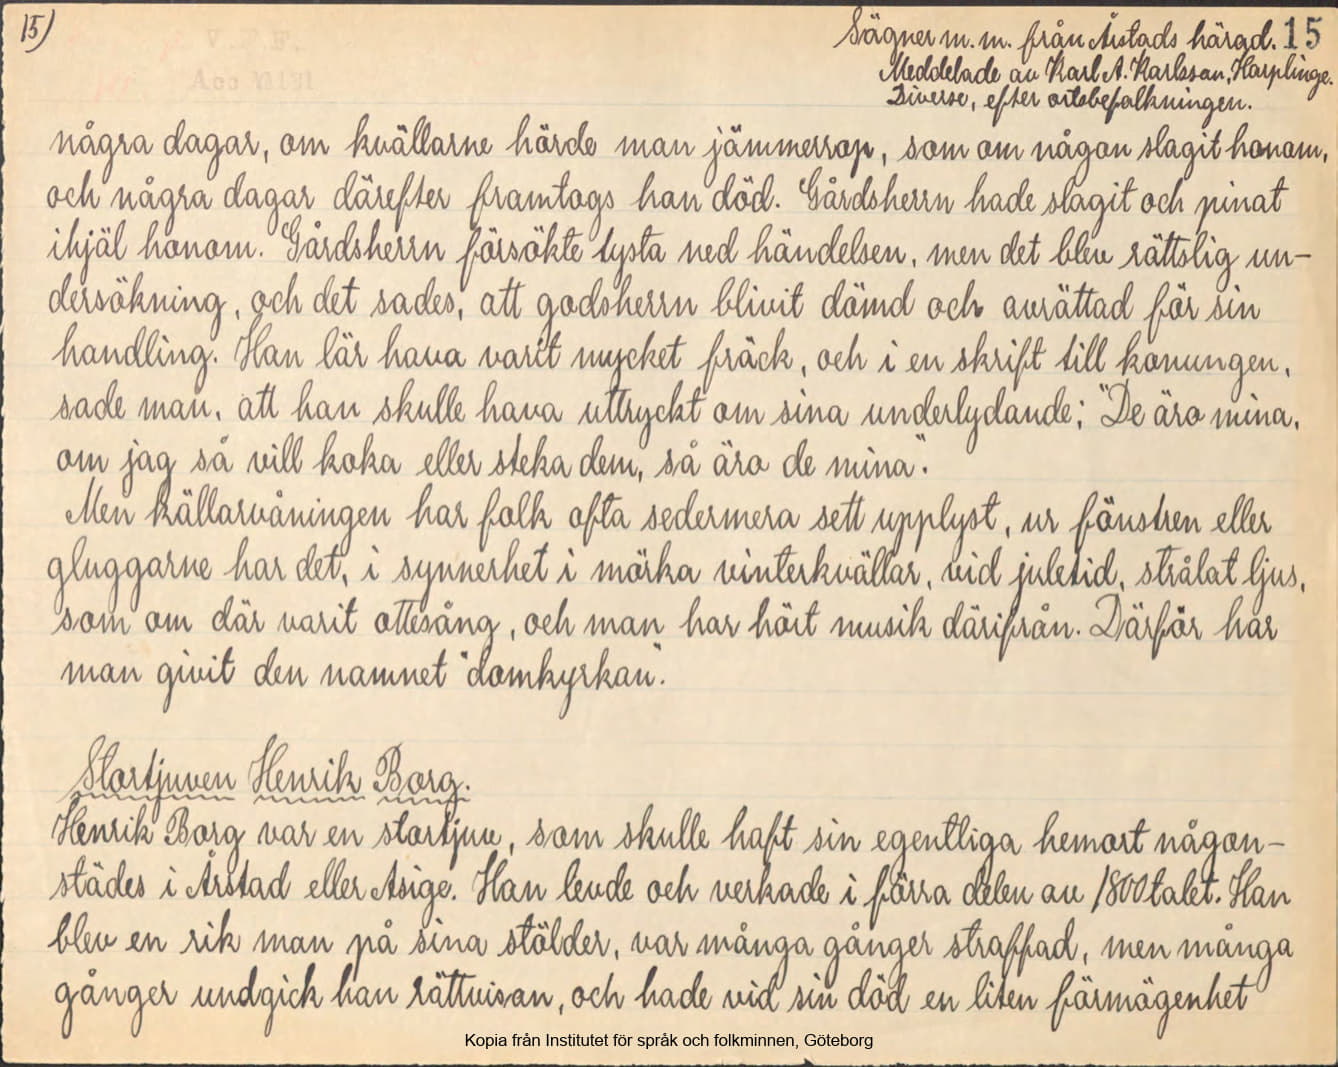 15)
Sägner m.m. från Årstads härad. 15
Meddelade av Karl A. Karlsson, Harplinge.
Diverse, efter ortsbefolkningen.
V.F.F.
Acc
några dagar, om kvällarne hörde man jämmerrop, som om någon slagit honom,
och några dagar därefter framtogs han död. Gårdsherrn hade slagit och pinat
ihjäl honom. Gårdsherrn försökte tysta ned händelsen, men det blev rättslig un-
dersökning, och det sades, att godsherrn blivit dömd och avrättad för sin
handling. Han lär hava varit mycket fräck, och i en skrift till konungen,
sade man, att han skulle hava uttryckt om sina underlydande; "De äro mina,
om jag så vill koka eller steka dem, så äro de mina".
Men källarvåningen har folk ofta sedermera sett upplyst, ur fönstren eller
gluggarne har det, i synnerhet i mörka vinterkvällar, vid juletid, strålat ljus,
som om där varit ottesång, och man har hört musik därifrån. Därför har
man givit den namnet "domkyrkan".
Stortjuven Henrik Borg.
Henrik Borg var en stortjuv, som skulle haft sin egentliga hemort någon-
städes i Årstad eller Asige. Han levde och verkade i förra delen av 1800talet. Han
blev en rik man på sina stölder, var många gånger straffad, men många
gånger undgick han rättvisan, och hade vid sin död en liten förmögenhet
Kopia från Institutet för språk och folkminnen, Göteborg